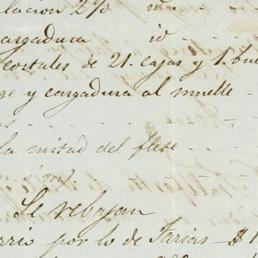 lacion 2%
cargadura id
costales de 21. cajas y 1. bu
ge y cargadura al muelle
la mitad del flete
Se rebajan
rrio por lo de Farias $1